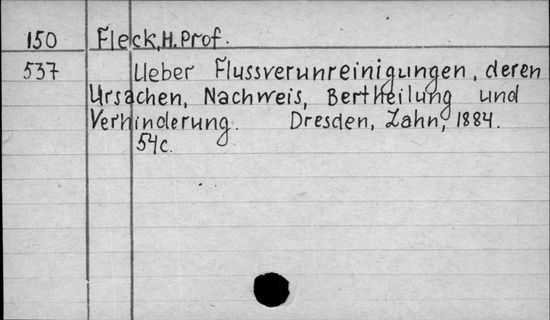 150 Fleck, H. Prof.
537 Ueber Flussverunreinigungen, deren
Ursachen, Nachweis, Bertheilung und
Verhinderung. Dresden, Zahn, 1884.
54c.